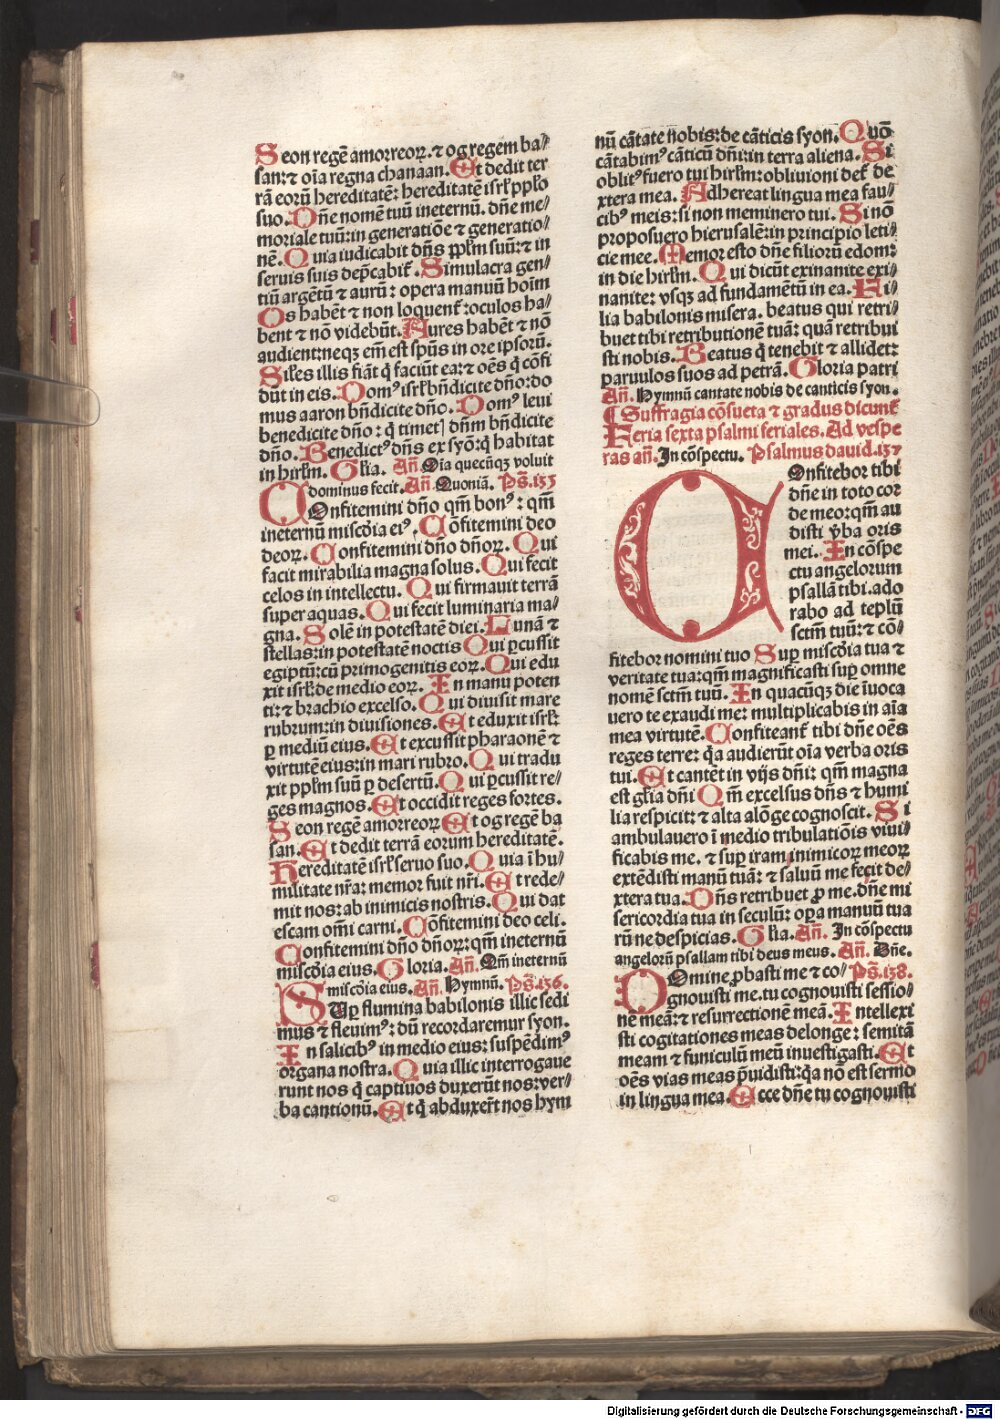 Seon regē amorreoꝝ.⁊ og regem ba⸗
san:⁊ oīa regna chanaan. Et dedit ter
rā eorū hereditatē: hereditatē isrl̓ pplo
suo. Dn̄e nomē tuū ineternū. dn̄e me⸗
moriale tuū:in generatiōe ⁊ generatio⸗
nē. Quia iudicabit dn̄s pplm̄ suū:⁊ in
seruis suis dep̄cabit̉. Simulacra gen⸗
tiū argētū ⁊ aurū: opera manuū hoīm
Os habēt ⁊ non loquent̉:oculos ha⸗
bent ⁊ nō videbūt. Aures habēt ⁊ nō
audient:neqꝫ em̄ est sp̄us in ore ipsorū.
Sil̓es illis fiāt q̇ faciūt ea:⁊ oēs q̇ cōfi
dūt in eis. Domꝰ isrl̓ bn̄dicite dn̄o:do
mus aaron bn̄dicite dn̄o. Domꝰ leui
benedicite dn̄o: q̇ timetꝭ dn̄m bn̄dicite
dn̄o. Benedictꝰ dn̄s ex syō:q̇ habitat
in hirlm̄. Gl̓ia. Añ. Oīa quecūqꝫ voluit
dominus fecit. Añ. Quoniā. Ps̄.135
COnfitemini dn̄o qm̄ bonꝰ: qm̄
ineternū misc̄dia eiꝰ. Cōfitemini deo
deoꝝ. Confitemini dn̄o dn̄oꝝ. Qui
facit mirabilia magna solus. Qui fecit
celos in intellectu. Qui firmauit terrā
super aquas. Qui fecit luminaria ma⸗
gna. Solē in potestatē diei. Lunā ⁊
stellas:in potestatē noctis Qui ꝑcussit
egiptū:cū primogenitis eoꝝ. Qui edu
xit isrl̓:de medio eoꝝ. In manu poten
ti:⁊ brachio excelso. Qui diuisit mare
rubrum:in diuisiones. Et eduxit isrl̓:
ꝑ mediū eius. Et excussit pharaonē ⁊
virtutē eius:in mari rubro. Qui tradu
xit pplm̄ suū ꝑ desertū. Qui ꝑcussit re⸗
ges magnos. Et occidit reges fortes.
Seon regē amorreoꝝ Et og regē ba
san. Et dedit terrā eorum hereditatē.
Hereditatē isrl̓ seruo suo. Quia ī hu⸗
militate nr̄a: memor fuit nr̄i. Et rede⸗
mit nos:ab inimicis nostris. Qui dat
escam om̄i carni. Cōfitemini deo celi.
Confitemini dn̄o dn̄oꝝ:qm̄ ineternū
misc̄dia eius. Gloria. Añ. Qm̄ ineternū
misc̄dia eius. Añ. Hymnū. Ps̄.136.
SUꝑ flumina babilonis illic sedi
mus ⁊ fleuimꝰ: dū recordaremur syon.
In salicibꝰ in medio eius: suspēdimꝰ
organa nostra. Quia illic interrogaue
runt nos q̇ captiuos duxerūt nos:ver⸗
ba cantionū. Et q̇ abduxer̄t nos hym
nū cātate nobis:de cāticis syon. Quō
cātabimꝰ cāticū dn̄i:in terra aliena. Si
oblitꝰ fuero tui hirlm̄: obliuioni det̉ de
xtera mea. Adhereat lingua mea fau⸗
cibꝰ meis: si non meminero tui. Si nō
proposuero hierusalē:in principio leti⸗
cie mee. Memor esto dn̄e filiorū edom:
in die hirlm̄. Qui dicūt exinanite exi⸗
nanite: vsqꝫ ad fundamētū in ea. Fi⸗
lia babilonis misera. beatus qui retri⸗
buet tibi retributionē tuā: quā retribui
sti nobis. Beatus q̇ tenebit ⁊ allidet:
paruulos suos ad petrā. Gloria patri
Añ. Hymnū cantate nobis de canticis syon.
¶ Suffragia cōsueta ⁊ gradus dicunt̉
Feria sexta psalmi feriales. Ad vespe
ras añ. In cōspectu. Psalmus dauid.137
COnfitebor tibi
dn̄e in toto cor
de meo:qm̄ au
disti v̄ba oris
mei. In cōspe
ctu angelorum
psallā tibi.ado
rabo ad teplū
sctm̄ tuū:⁊ cō⸗
fitebor nomini tuo Suꝑ misc̄dia tua ⁊
veritate tua:qm̄ magnificasti suꝑ omne
nomē sctm̄ tuū. In quacūqꝫ die īuoca
uero te exaudi me: multiplicabis in aīa
mea virtutē. Confiteant̉ tibi dn̄e oēs
reges terre: q̄a audierūt oīa verba oris
tui. Et cantēt in vijs dn̄i: qm̄ magna
est gl̓ia dn̄i Qm̄ excelsus dn̄s ⁊ humi
lia respicit: ⁊ alta alōge cognoscit. Si
ambulauero ī medio tribulatiōis viui⸗
ficabis me. ⁊ suꝑ iram inimicoꝝ meoꝝ
extēdisti manū tuā: ⁊ saluū me fecit de⸗
xtera tua. Dn̄s retribuet ꝓ me. dn̄e mi
sericordia tua in seculū: oꝑa manuū tua
rū ne despicias. Gl̓ia. Añ. In cōspectu
angelorū psallam tibi deus meus. Añ. Dn̄e.
DOmine ꝓbasti me ⁊ co⸗ Ps̄.138.
gnouisti me. tu cognouisti sessio⸗
nē meā:⁊ resurrectionē meā. Intellexi
sti cogitationes meas delonge: semitā
meam ⁊ funiculū meū inuestigasti. Et
oēs vias meas p̄uidisti:q̄a nō est sermo
in lingua mea. Ecce dn̄e tu cognouisti
Digitalisierung gefördert durch die Deutsche Forschungsgemeinschaft - DFG